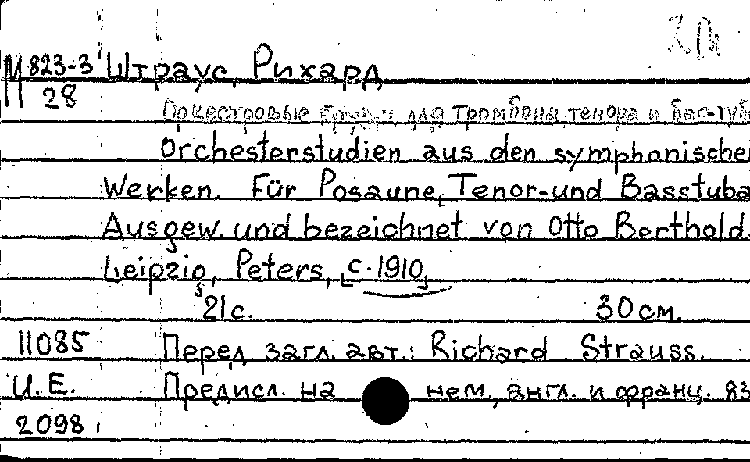 М 823-3 Штраус, Рихард
28
Оркестровые для тромбона, тенора и бас-туб
Orchesterstudien aus den symphonischen
Werken. Für Posaune, Tenor-und Basstuba
Ausgew. und bezeichnet von Otto Berthold.
Leipzig, Peters, [c. 1910]
21 с. 30 см.
11085 Перед загл. авт.: Richard Strauss.
И.Е. Предисл. на нем., англ. и франц. яз
2098